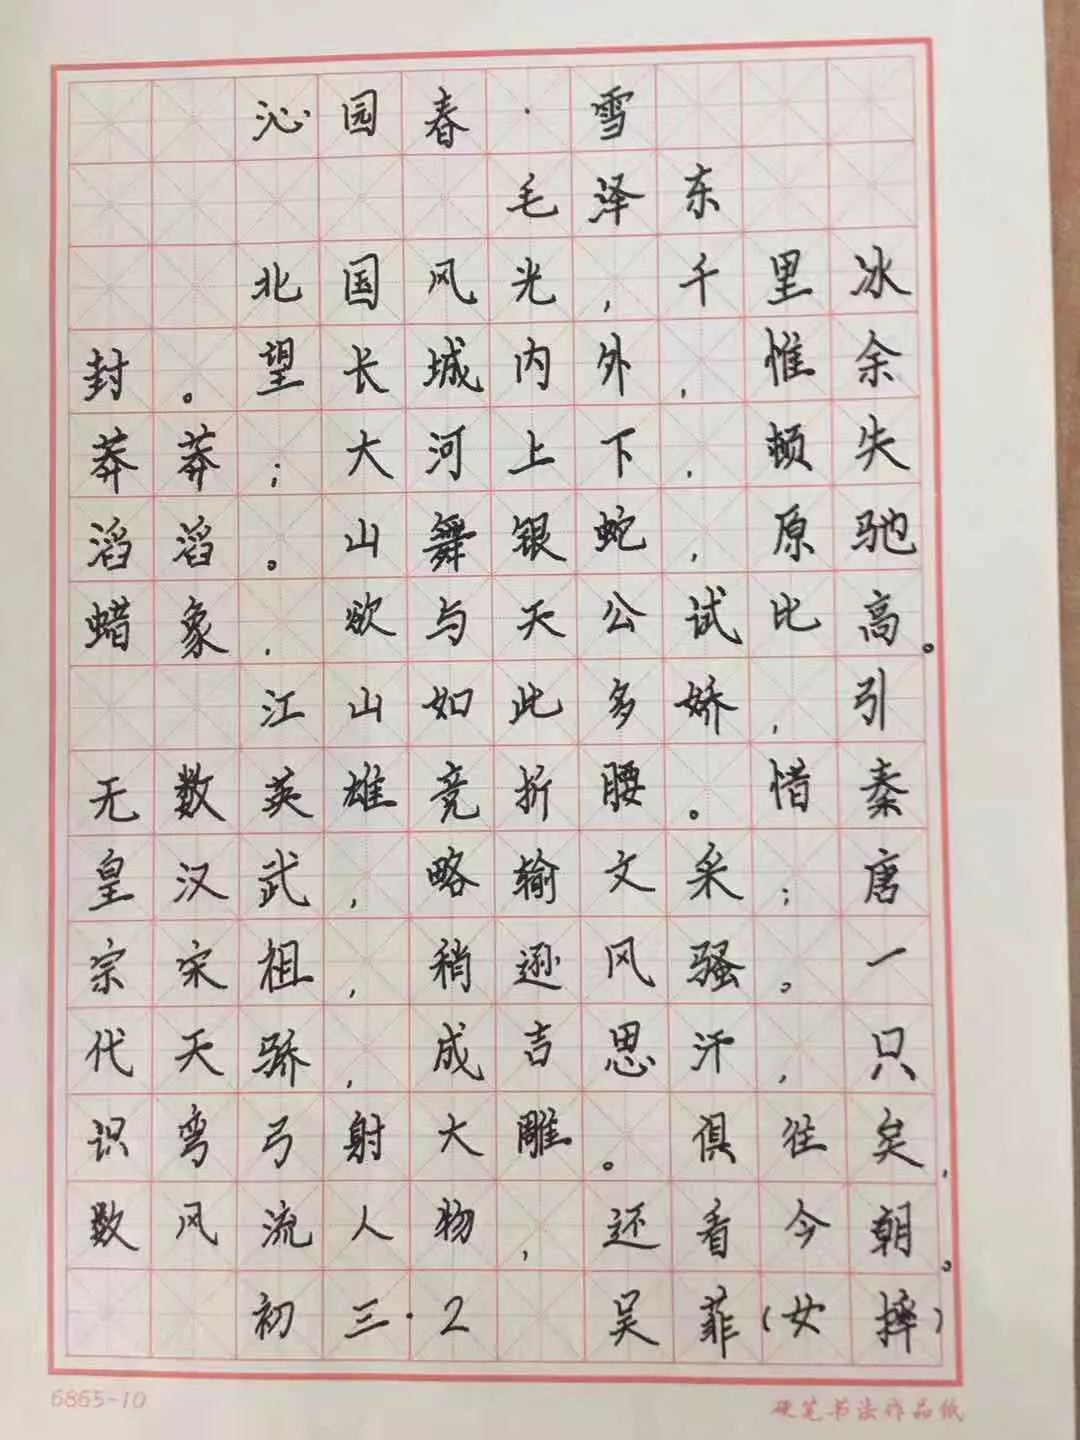 沁园春·雪
毛泽东
北国风光,千里冰
封。望长城内外,惟余
莽莽;大河上下,顿失
滔滔。山舞银蛇,原驰
蜡象,欲与天公试比高。
江山如此多娇,引
无数英雄竞折腰。惜秦
皇汉武,略输文采;唐
宗宋祖,稍逊风骚。一
代天骄,成吉思汗,只
识弯弓射大雕。俱往矣,
数风流人物,还看今朝。
初三·2 吴菲(女撑)
6865-10 硬笔书法作品纸